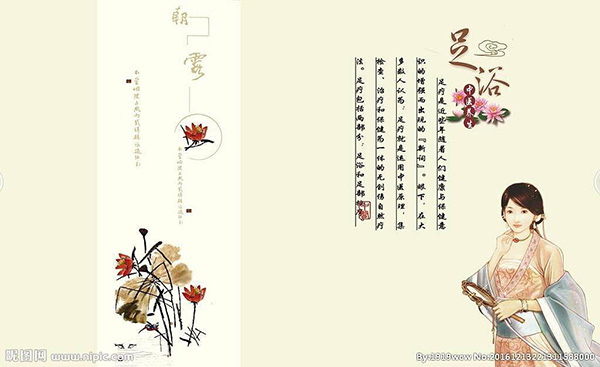 足浴
中医养生
足疗是近些年随着人们健康与保健意
识的增强而出现的『新词』。眼下，在大
多数人认为：足疗就是运用中医原理，集
检查、治疗和保健为一体的无创伤自然疗
法。足疗包括两部分：足浴和足部
朝露
昵图网 www.nipic.com
By:1919wow No:20161213221311588000